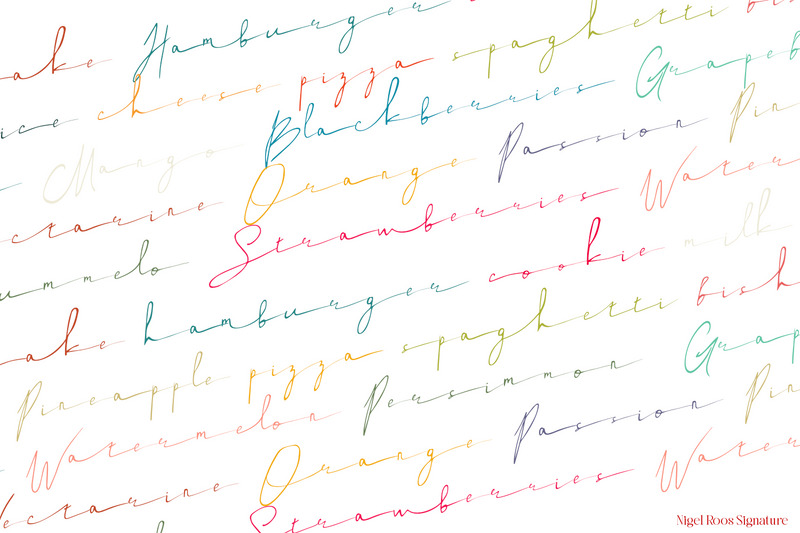 ake Hamburger
ice cheese pizza spaghetti bish
Mango Blackberries Grapeb
ctarine Orange Passion Pin
ummelo Strawberries Water
ake hamburger cookie milk
Pineapple pizza spaghetti bish
Watermelon Persimmon Grap
ectarine Orange Passion Pin
Strawberries Water
Nigel Roos Signature